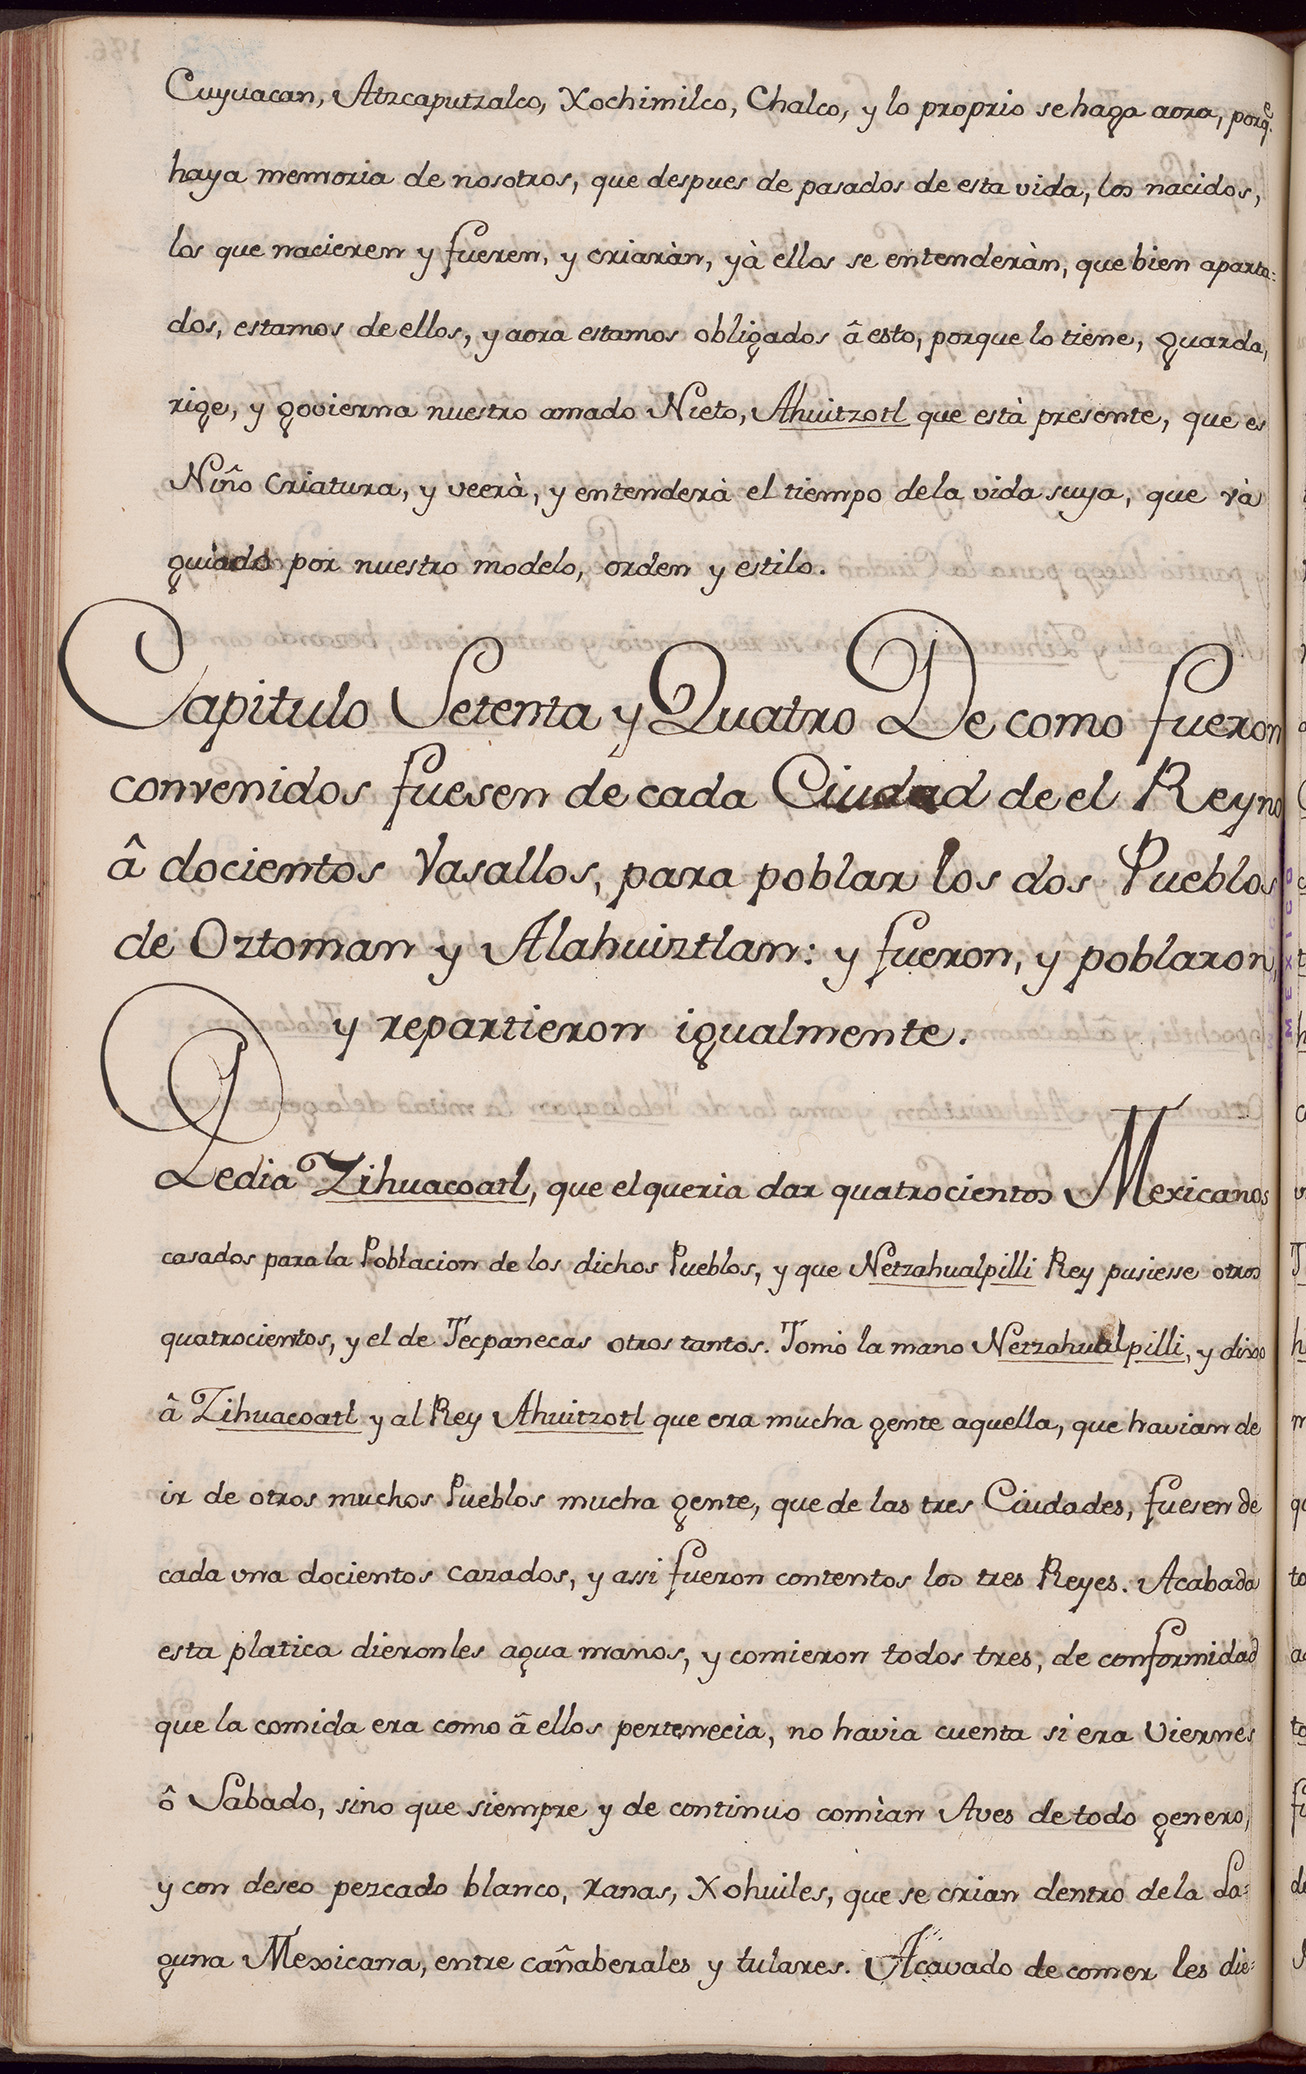 Cuyuacan, Atzcaputzalco, Xochimilco, Chalco, y lo proprio se haga aora, porq.e
haya memoria de nosotros, que despues de pasados de esta vida, los nacidos,
los que nacieren y fueren, y criaràn, yà ellos se entenderàn, que bien aparta=
dos, estamos de ellos, y aora estamos obligados â esto, porque lo tiene, guarda,
rige, y govierna nuestro amado Nieto, Ahuitzotl que està presente, que es
Niño Criatura, y veerà, y entenderà el tiempo dela vida suya, que và
guiado por nuestro modelo, orden y estilo.
Capitulo Setenta y Quatro De como fueron
convenidos fuesen de cada Ciudad de el Reyno
â docientos Vasallos, para poblar los dos Pueblos
de Oztoman y Alahuiztlan: y fueron, y poblaron,
y repartieron igualmente.
Ledia Zihuacoatl, que el queria dar quatrocientos Mexicanos
casados para la Poblacion de los dichos Pueblos, y que Netzahualpilli Rey pusiesse otros
quatrocientos, y el de Tecpanecas otros tantos. Tomò la mano Netzahualpilli, y dixo
â Zihuacoatl y al Rey Ahuitzotl que era mucha gente aquella, que haviam de
ir de otros muchos Pueblos mucha gente, que de las tres Ciudades, fuesen de
cada una docientos cazados, y assi fueron contentos los tres Reyes. Acabada
esta platica dieronles agua manos, y comieron todos tres, de conformidad
que la comida era como â ellos pertenecìa, no havia cuenta si era Viernes
ô Sabado, sino que siempre y de continuo comìan Aves de todo genero,
y con deseo pezcado blanco, ranas, Xohuiles, que se crian dentro dela La=
guna Mexicana, entre cañaberales y tulares. Acavado de comer les die=
MEXICO